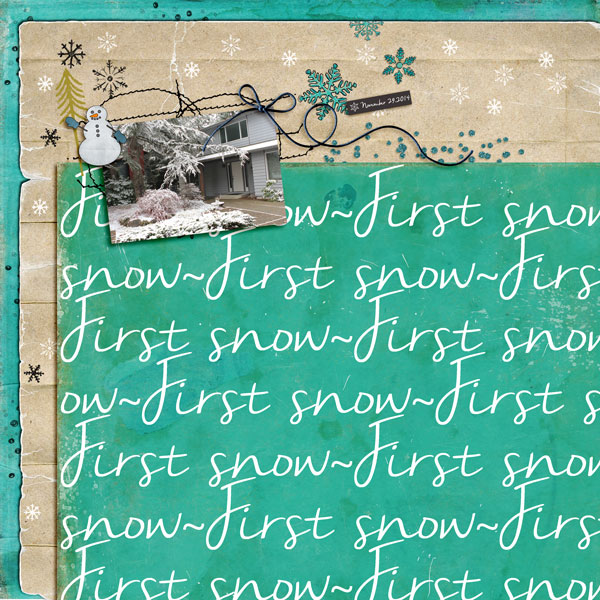 November 29,2014
Fi ow~First snow
snow~First snow~Firs
First snow~First snow
ow~First snow~First s
First snow~First snow
snow~First snow~Firs
First snow~First snow